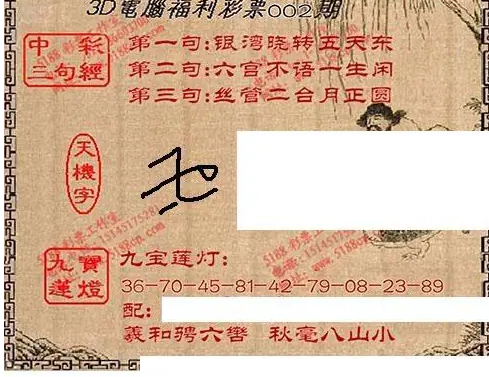 3D電腦福利彩票002期
中彩
三句經
第一句:银湾晓转五天东
第二句:六宫不语一生闲
第三句:丝管二台月正圆
天機字
九寶
蓮燈
九宝莲灯:
36-70-45-81-42-79-08-23-89
配:
義和骋六轡 秋毫八山小